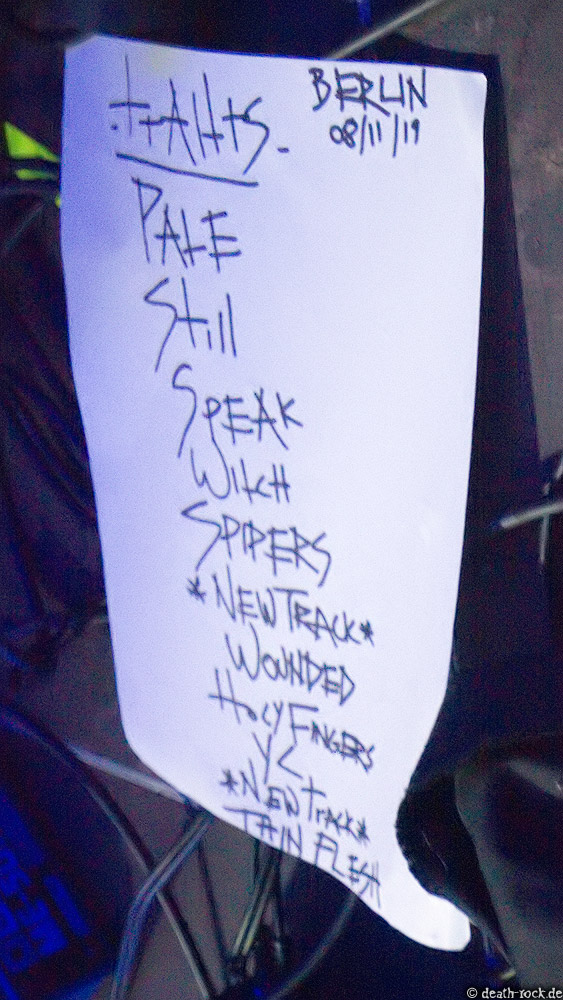 .trAitS.
BERLIN
08/11/19
PALE
Still
SPEAK
WitcH
SPIDERS
*NEW TRACK*
WOUNDED
HOLY FINGERS
YC
*NEW TRACK*
THIN FLESH
© death-rock.de